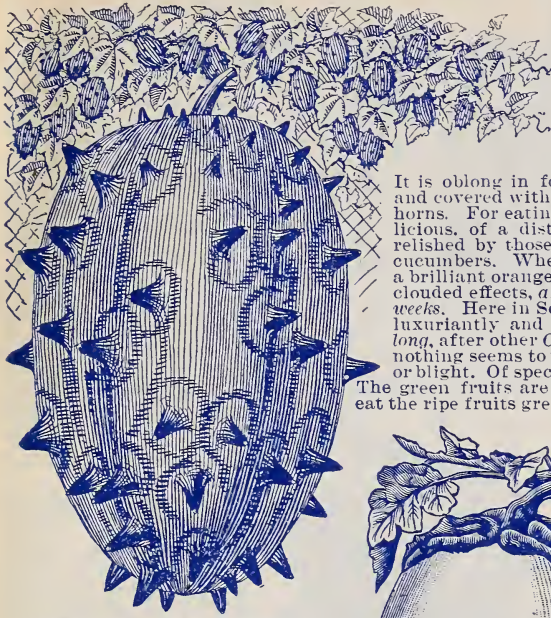 It is oblong in fo
and covered with
horns. For eatin
licious, of a dist
relished by those
cucumbers. Whe
a brilliant orange
clouded effects, a
weeks. Here in So
luxuriantly and
long, after other C
nothing seems to
or blight. Of spec
The green fruits are
eat the ripe fruits gre